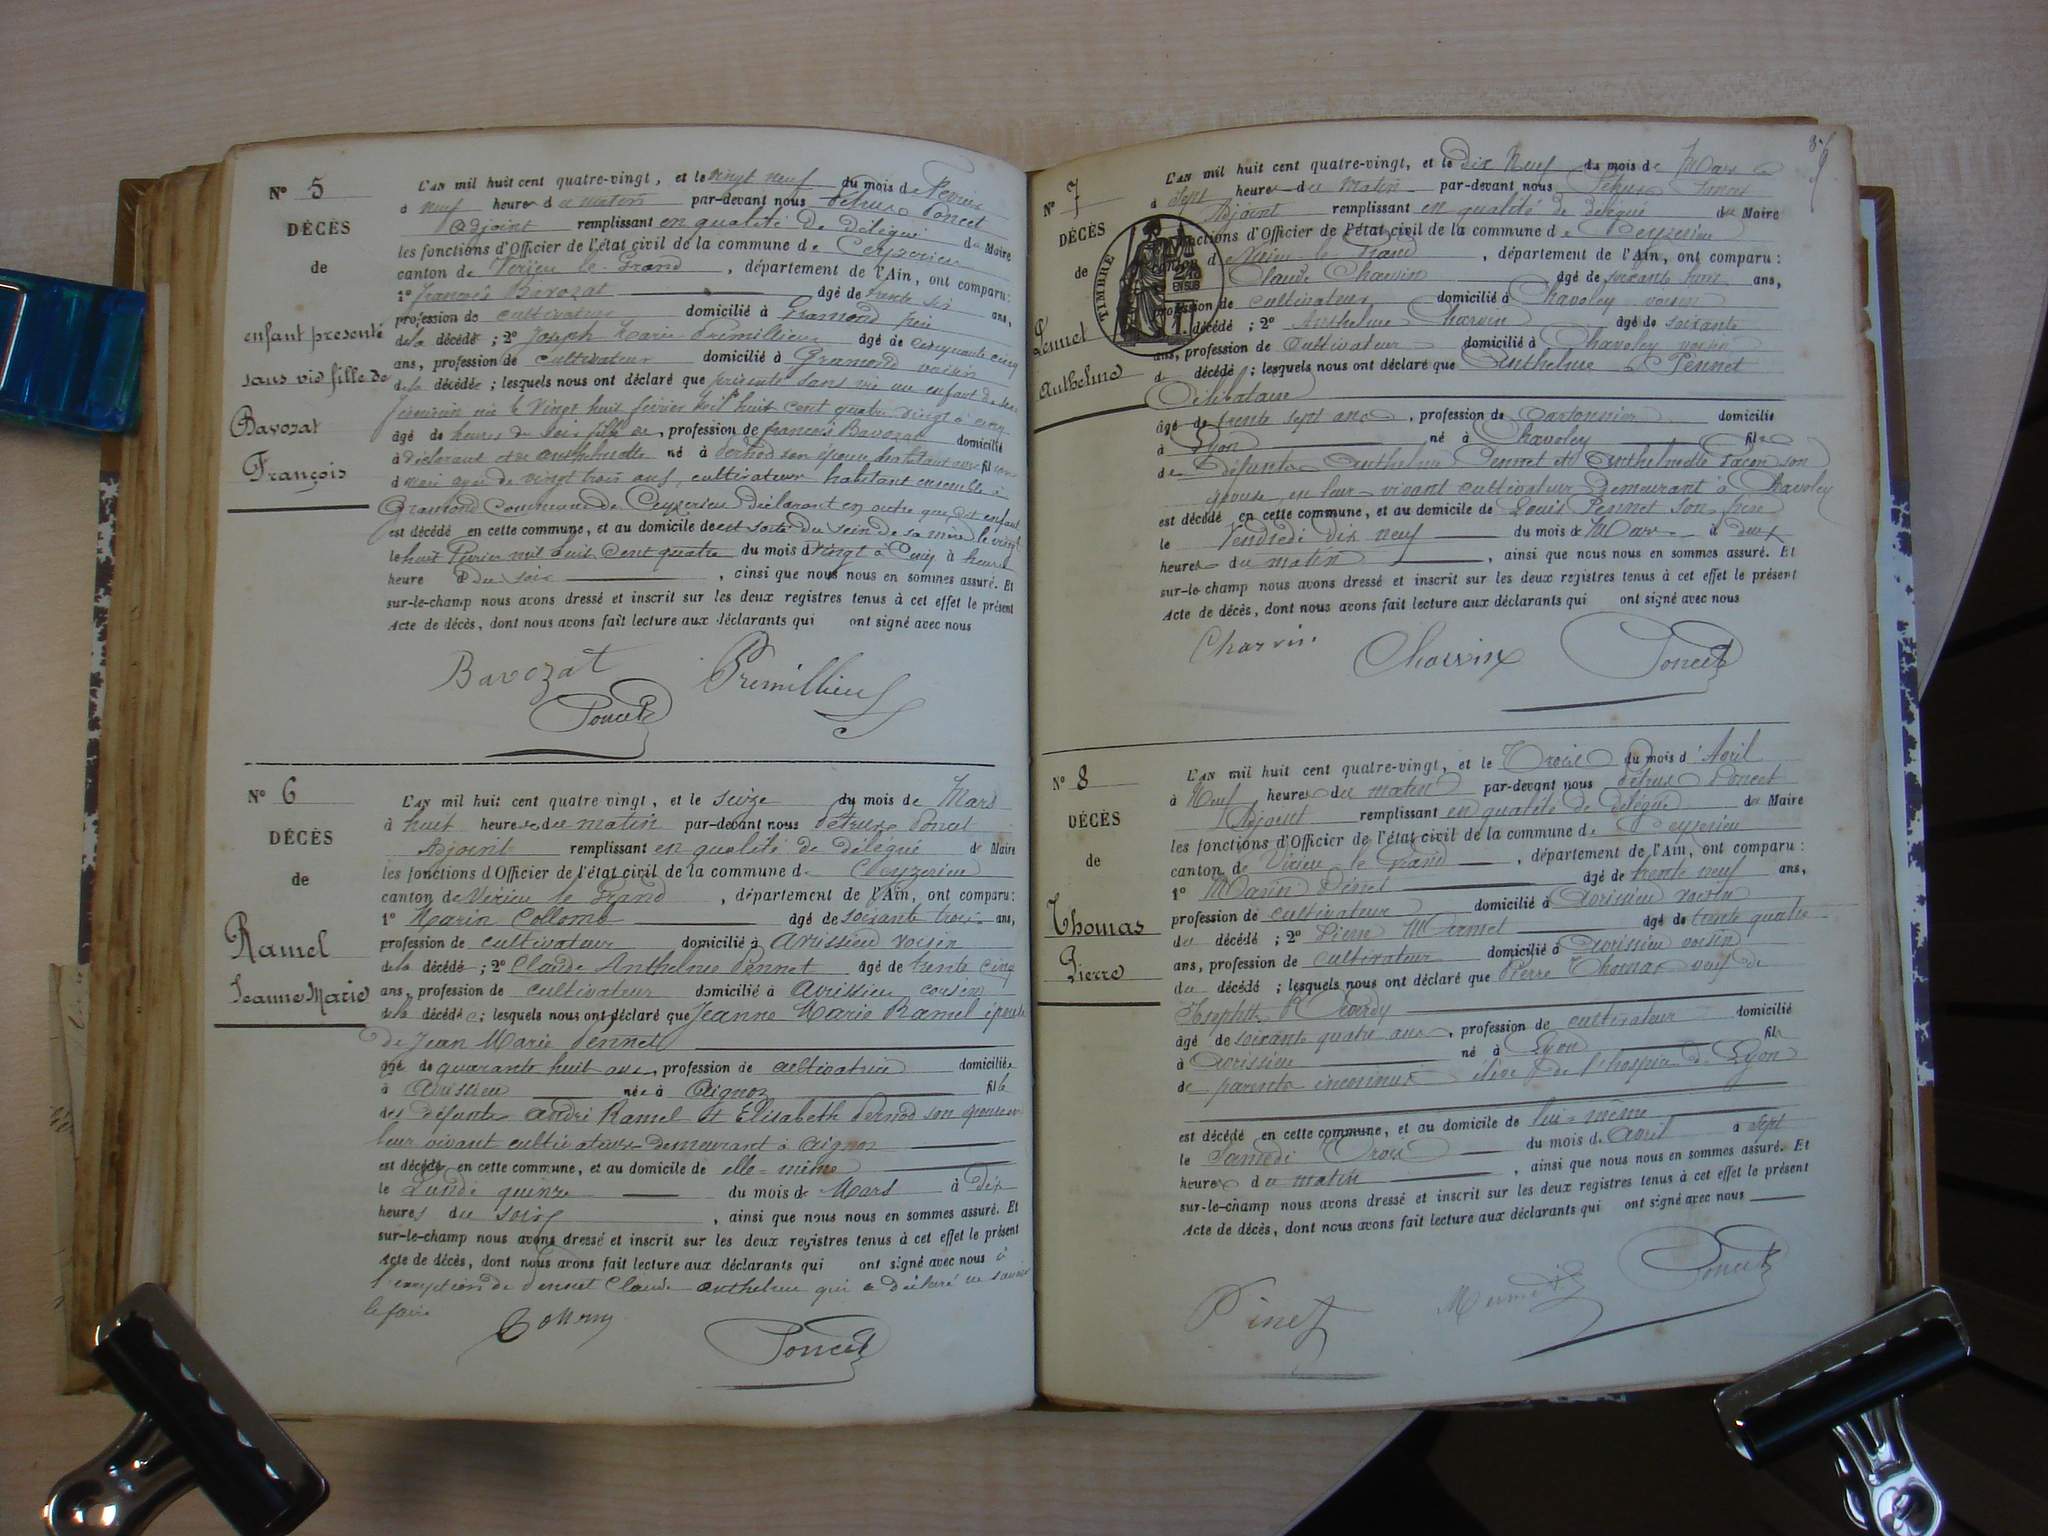 N° 5
DÉCÈS
de
enfant presenté
sans vie fille de
Bavozat
François
L'AN mil huit cent quatre-vingt, et le vingt neuf du mois de Fevrier
à neuf heures du matin par-devant nous Petrus Poncet
Adjoint remplissant en qualité de délégué du Maire
les fonctions d'Officier de l'état civil de la commune de Ceyzerieu
canton de Virieu le Grand, département de l'Ain, ont comparu:
1° François Bavozat âgé de trente six ans,
profession de cultivateur domicilié à Gramond père
de la décédé; 2° Joseph Marie Premillieu âgé de cinquante cinq
ans, profession de cultivateur domicilié à Gramond voisin
de la décédée; lesquels nous ont déclaré que présente sans vie un enfant de sexe
féminin née le vingt huit fevrier mil huit cent quatre vingt à cinq
âgé de heures du soir fille de, profession de françois Bavozat domicilié
à déclarant et de anthelmette né à Pernod son epouse habitant avec fil son
d mari agée de vingt trois ans, cultivateur habitant ensemble à
Gramond Commune de Ceyzerieu Déclarant en outre que dit enfant
est décédé en cette commune, et au domicile de est sorti du sein de sa mère le vingt
le huit Fevrier mil huit Cent quatre du mois d vingt à Cinq à heures
heure d du soir, ainsi que nous nous en sommes assuré. Et
sur-le-champ nous avons dressé et inscrit sur les deux registres tenus à cet effet le présent
Acte de décès, dont nous avons fait lecture aux déclarants qui ont signé avec nous
Bavozat Premillieu
Poncet
N° 6
DÉCÈS
de
Ramel
Jeanne Marie
L'AN mil huit cent quatre vingt, et le seize du mois de Mars
à huit heures du matin par-devant nous Petrus Poncet
Adjoint remplissant en qualité de délégué de Maire
les fonctions d'Officier de l'état civil de la commune de Ceyzerieu
canton de Virieu le Grand, département de l'Ain, ont comparu:
1° Marin Collomb âgé de soixante trois ans,
profession de cultivateur domicilié à Avrissieu voisin
de la décédé; 2° Claude Anthelme Pennet âgé de trente cinq
ans, profession de cultivateur domicilié à Avrissieu cousin
de la décédée; lesquels nous ont déclaré que Jeanne Marie Ramel épouse
de Jean Marie Pennet
âgé de quarante huit ans, profession de cultivatrice domiciliée
à Avrissieu née à Aignoz fille
des défunts André Ramel et Elisabeth Pernod son epouse en
leur vivant cultivateurs demeurant à Aignoz
est décédé en cette commune, et au domicile de elle-même
le Lundi quinze du mois de Mars à dix
heures du soir, ainsi que nous nous en sommes assuré. Et
sur-le-champ nous avons dressé et inscrit sur les deux registres tenus à cet effet le présent
Acte de décès, dont nous avons fait lecture aux déclarants qui ont signé avec nous à
l'exception de Pennet Claude anthelme qui a déclaré ne savoir
le faire
Poncet
N° 7
DÉCÈS
de
Pennet
Anthelme
TIMBRE
L'AN mil huit cent quatre-vingt, et le dix Neuf du mois de Mars
à sept heures du matin par-devant nous Petrus Poncet
Adjoint remplissant en qualité de délégué du Maire
fonctions d'Officier de l'état civil de la commune de Ceyzerieu
canton d Virieu le Grand, département de l'Ain, ont comparu:
Claude Charvin âgé de soixante ans,
profession de cultivateur domicilié à Chavoley voisin
décédé; 2° Anthelme Charvin âgé de soixante
ans, profession de Cultivateur domicilié à Chavoley voisin
d décédé; lesquels nous ont déclaré que Anthelme Pennet
Célibataire
âgé de trente sept ans, profession de Cartonnier domicilié
à Lyon né à Chavoley fils
de Défunts Anthelme Pennet et Anthelmette son
epouse, en leur vivant cultivateur demeurant à Chavoley
est décédé en cette commune, et au domicile de Louis Pennet son frère
le Vendredi dix neuf du mois de Mars à deux
heures du matin, ainsi que nous nous en sommes assuré. Et
sur-le-champ nous avons dressé et inscrit sur les deux registres tenus à cet effet le présent
Acte de décès, dont nous avons fait lecture aux déclarants qui ont signé avec nous
Charvin Charvin Poncet
N° 8
DÉCÈS
de
Thomas
Pierre
L'AN mil huit cent quatre-vingt, et le Trois du mois d'Avril
à Neuf heures du matin par-devant nous Petrus Poncet
Adjoint remplissant en qualité de délégué du Maire
les fonctions d'Officier de l'état civil de la commune de Ceyzerieu
canton de Virieu le Grand, département de l'Ain, ont comparu:
1° Marin Pinet âgé de trente neuf ans,
profession de cultivateur domicilié à Avrissieu voisin
du décédé; 2° Pierre Mermet âgé de trente quatre
ans, profession de cultivateur domicilié à Avrissieu voisin
du décédé; lesquels nous ont déclaré que Pierre Thomas veuf de
Josephte Reverdy
âgé de soixante quatre ans, profession de cultivateur domicilié
à Avrissieu né à Lyon fils
de parents inconnus élève de l'hospice de Lyon
est décédé en cette commune, et au domicile de lui-même
le Samedi Trois du mois d Avril à sept
heures du matin, ainsi que nous nous en sommes assuré. Et
sur-le-champ nous avons dressé et inscrit sur les deux registres tenus à cet effet le présent
Acte de décès, dont nous avons fait lecture aux déclarants qui ont signé avec nous
Pinet Mermet Poncet